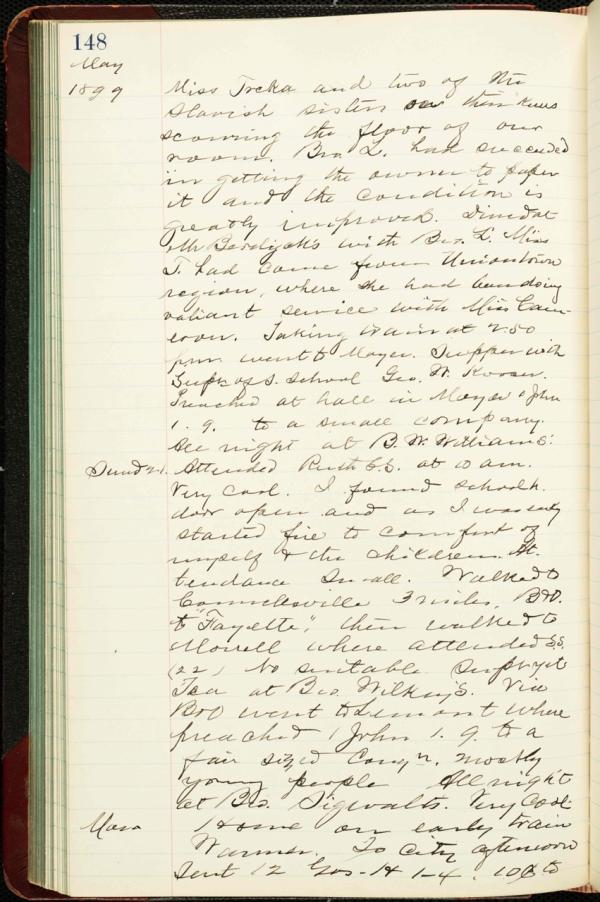 148
May
1899 Miss Treka and two of the
Slavish sisters on their knees
scouring the floor of our
room. Bro. L. had succeeded
in getting the owner to paper
it and the condition is
greatly improved. Dined at
Mr Berdijck's with Bro. L. Miss
T. had come from Uniontown
region, where she had been doing
valiant service with Miss Cam-
eron. Taking train at 2.50
p.m. went to Moyer. Supper with
Supt of S. School Geo. W.
Preached at hall in Moyer 1 John
1. 9. to a small company.
All night at B. W. Williams'.
Sund 21. Attended Ruth S.S. at 10 am.
Very cool. I found school h.
door open and as I was early
started fire to comfort of
myself & the children. At-
tendance small. Walked to
Connellsville 3 miles, B&O.
to "Fayette", then walked to
Morrell where attended S.S.
(22) No suitable Supt yet
Tea at Bro. Wilkey's. Via
B&O went to Lemont where
preached 1 John 1. 9. to a
fair sized Cong'n. mostly
young people All night
at Bro. Sigwalts. Very cool.
Home on early train
Warmer. To City afternoon
Sent 12 Gos-H 1-4. to